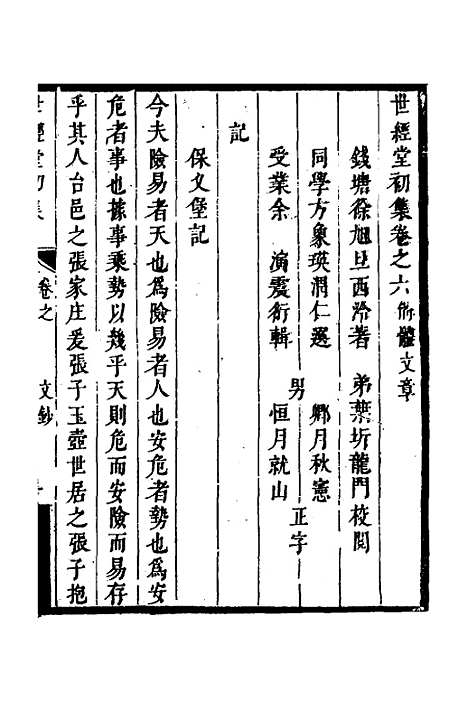 世經堂初集卷之六 術體文章
錢塘徐旭旦西泠著 弟葉圻龍門校閱
同學方象瑛渭仁選
受業余 演震衍輯
男 鄉月秋憲
恒月就山
正字
記
保文堡記
今夫險易者天也爲險易者人也安危者勢也爲安
危者事也據事乘勢以幾乎天則危而安險而易存
乎其人台邑之張家庄爰張子玉壺世居之張子抱
世經堂初集
卷之
文鈔